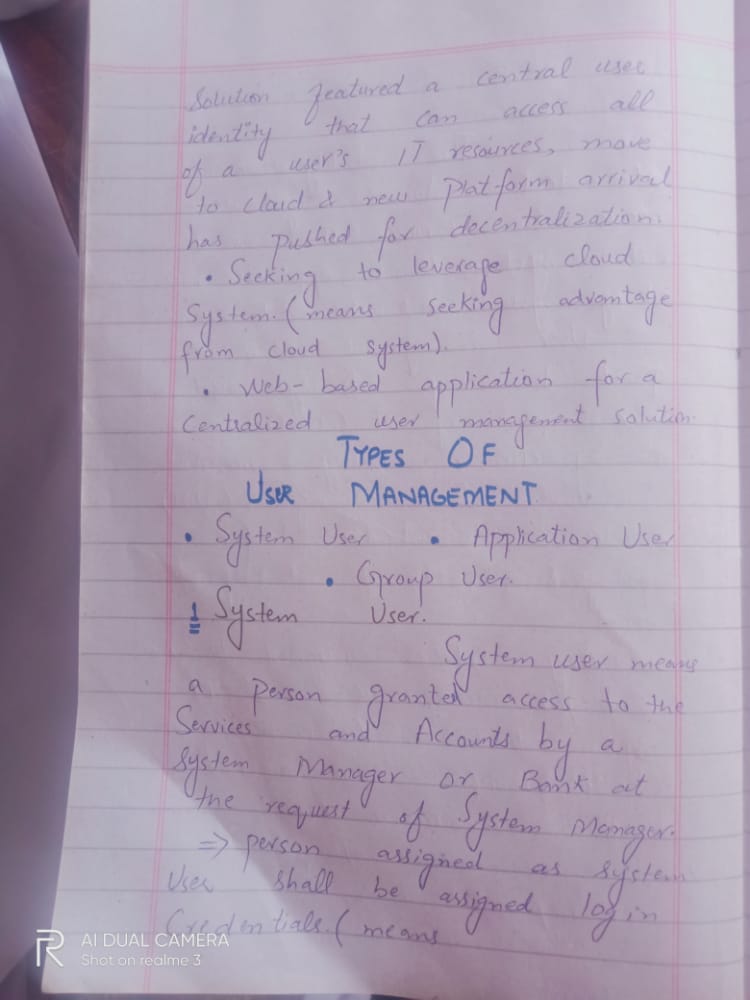 Solution featured a central user
identity that can access all
of a user's IT resources, move
to cloud & new platform arrival
has pushed for decentralization.
• Seeking to leverage cloud
System. (means seeking advantage
from cloud system).
• Web-based application for a
Centralized user management solution.
TYPES OF
USER MANAGEMENT
• System User • Application User
• Group User.
1 System User.
System user means
a person granted access to the
Services and Accounts by a
System Manager or Bank at
the request of System Manager.
=> person assigned as system
User shall be assigned log in
Credentials. (means
R AI DUAL CAMERA
Shot on realme 3